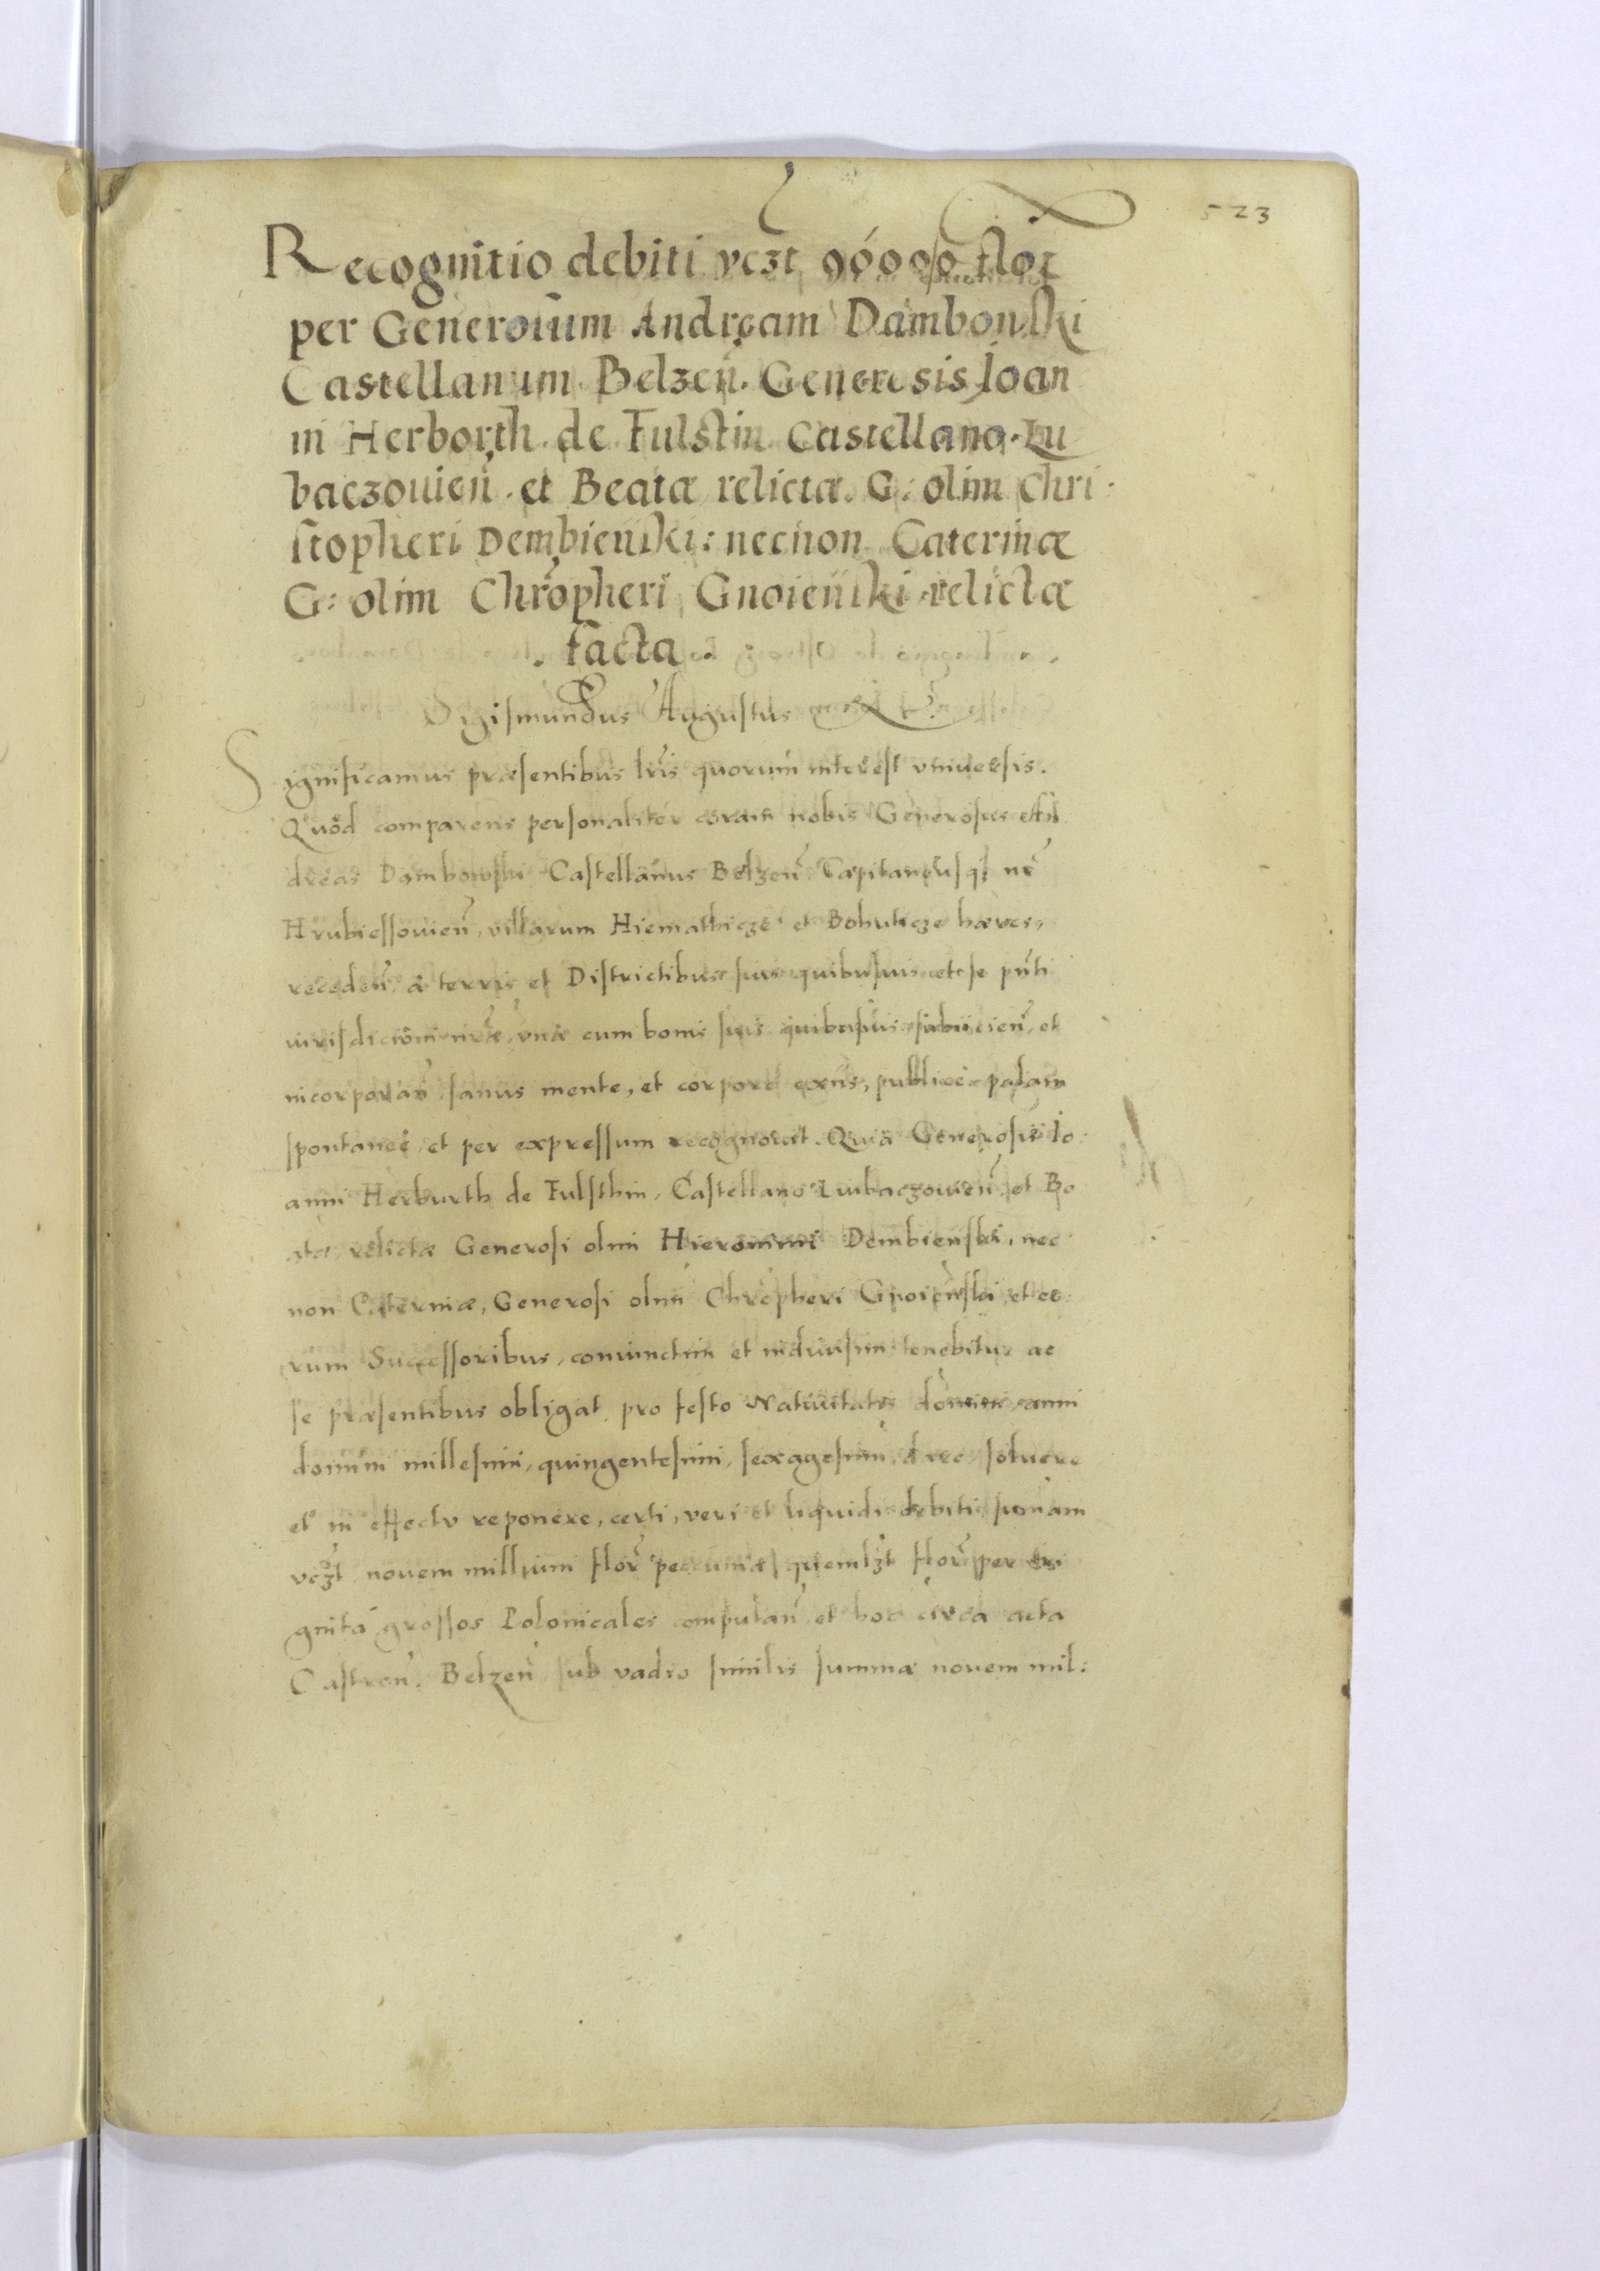 523
Recognitio debiti vczt 9000 flor
per Generosum Andream Dambowski
Castellanum Belzeñ. Generosis Ioan
ni Herborth de Fulstin Castellano Lu
baczouieñ. et Beatæ relictæ. G: olim Chri
stopheri Dembienski: necnon Caterinæ
G: olim Chrõpheri Gnoienski relictæ
facta.
Sigismundus Augustus
Significamus præsentibus lris quorum interest vniuersis.
Quòd comparens personaliter coram nobis Generosus An
dreas Dambowski Castellanus Belzeñ Capitaneusq3 nr
Hrubiessouieñ, villarum Hiemathicze et Bohuticze hæres,
recedeñ à terris et Districtibus suis quibusuis et se pñti
iurisdictiõni nræ, vnà cum bonis suis quibusuis subiicieñ, et
incorporañ sanus mente, et corpore exñs, publicè palam
spontaneè, et per expressum recognouit. Quia Generosis Io
anni Herburth de Fulsthin, Castellano Lubaczouieñ, et Be
atæ, relictæ Generosi olim Hieronimi Dembienski, nec
non Caterinæ, Generosi olim Chrõpheri Gnoienski, et eo
rum Successoribus, coniunctim et indiuisim tenebitur ac
se præsentibus obligat, pro festo Natiuitatis domini, anni
domini millesimi, quingentesimi, sexagesimi, dare, soluere
et in effectu reponere, certi, veri et liquidi debiti summam
vczt nouem millium flor pecuniæ quemlzt flor per tri
ginta grossos Polonicales computañ, et hoc circa acta
Castreñ. Belzeñ sub vadio similis summæ nouem mil: